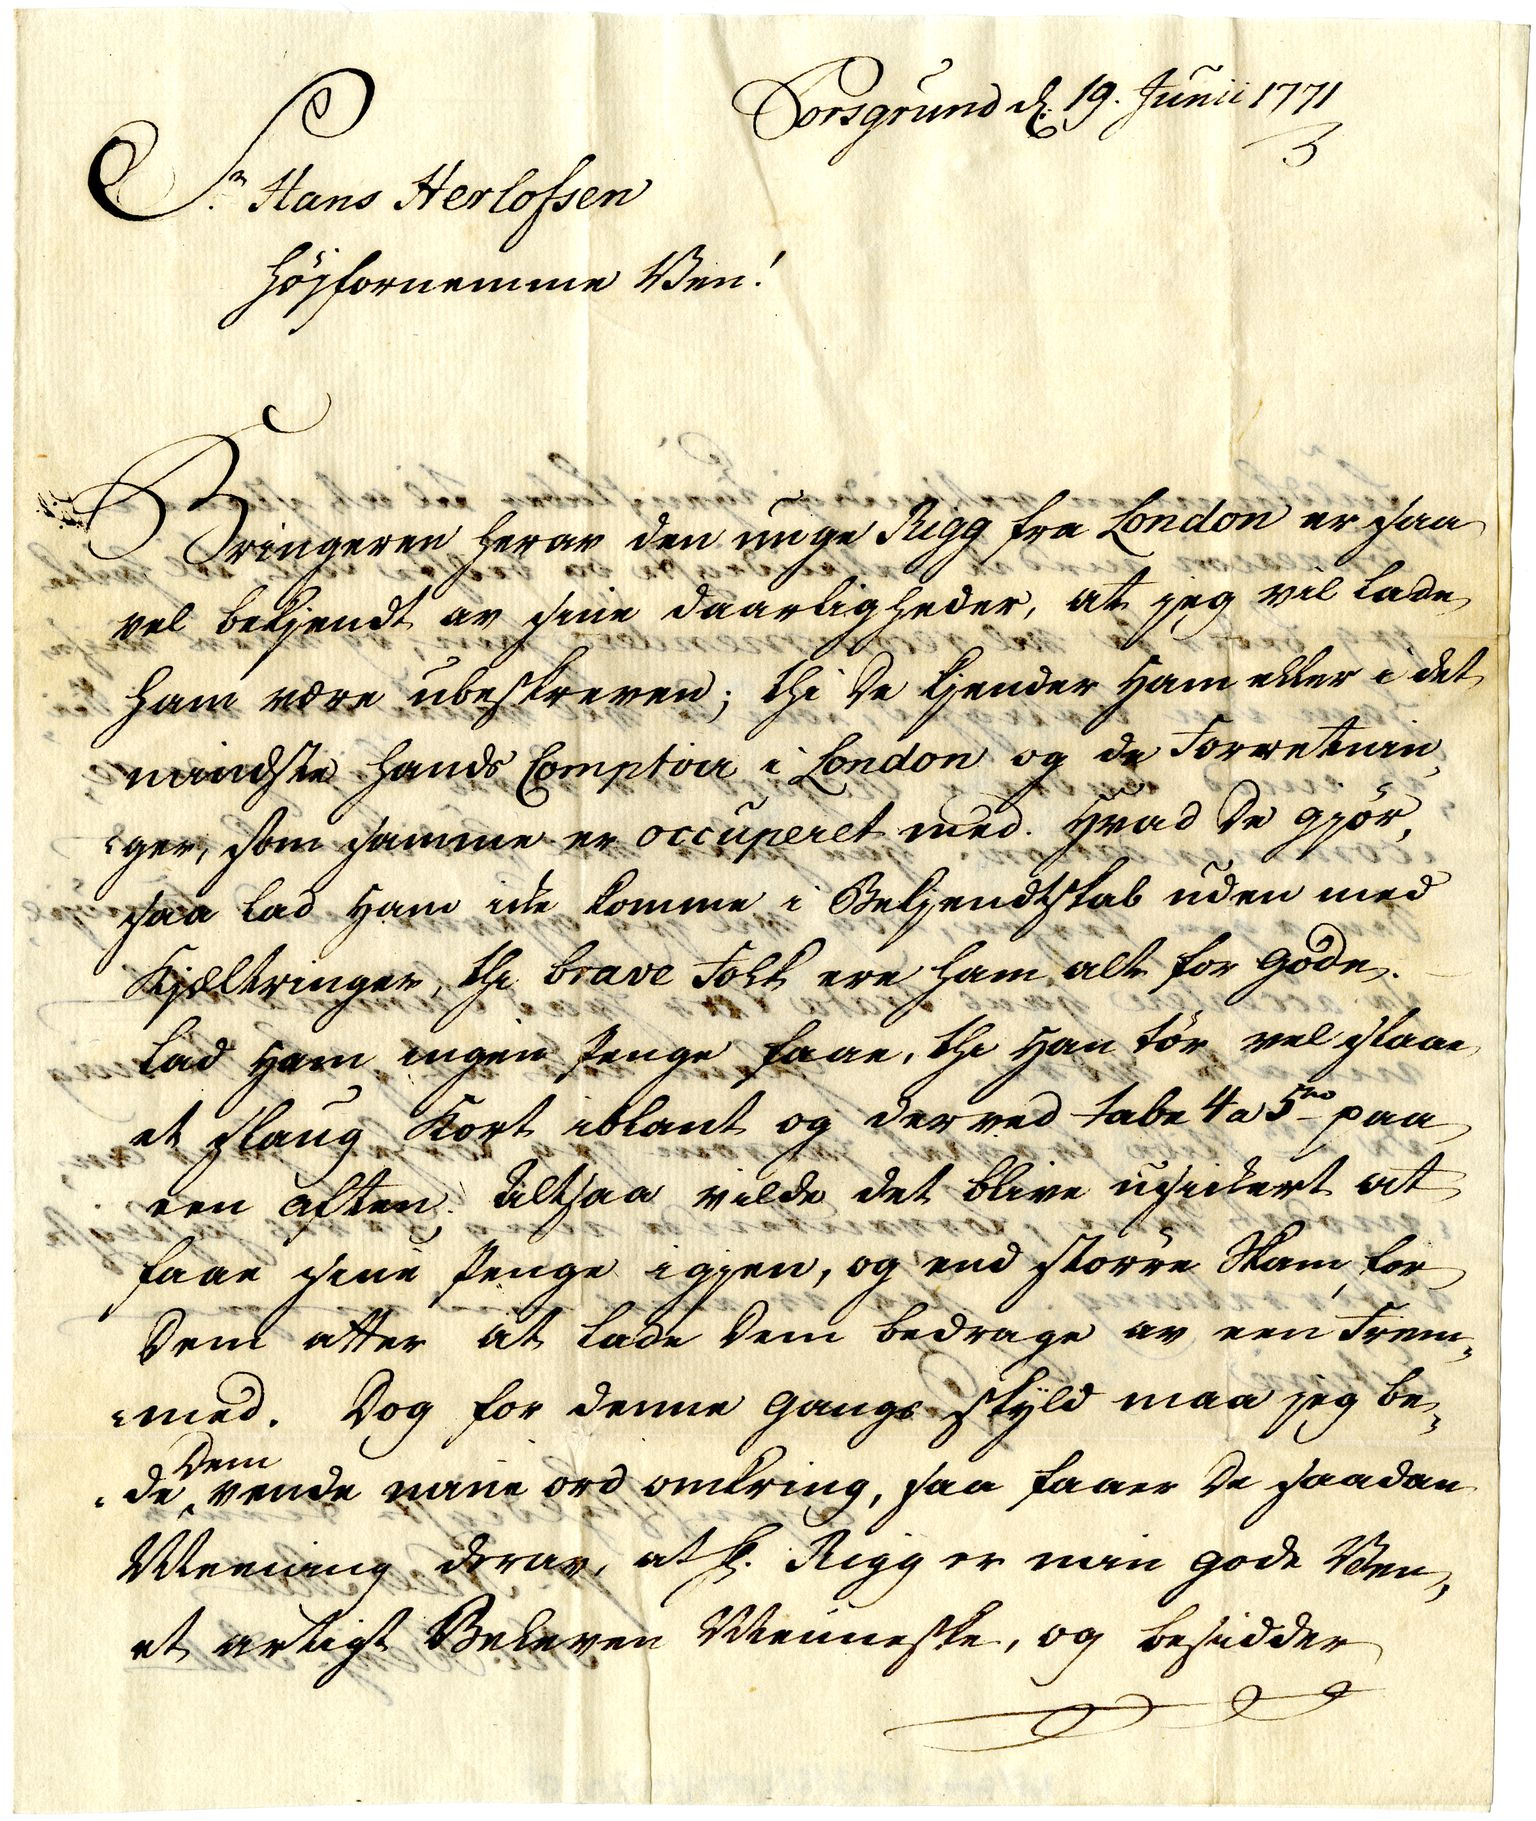 Porsgrund d. 19. Junii 1771
Sr. Hans Herlofsen
Höjfornemme Ven!
Bringeren herav den unge Rigg fra London er saa
vel bekjendt av sine daarligheder, at jeg vil lade
ham være ubeskreven; thi De kjender Ham eller i det
mindste hands Comptoir i London og de Forretnin,
ger, som samme er occuperet med. Hvad De gjör,
saa lad Ham ikke komme i Bekjendtskab uden med
Kjæltringer, thi brave Folk ere ham alt for gode.
Lad Ham ingen Penge faae, thi Han tör vel slaae
et slaug Kort iblant og derved tabe 4 a 5 paa
een aften. Altsaa vilde det blive usickert at
faae sine Penge igjen, og end större Skam for
Dem atter at lade Dem bedrage av een Frem,
med. Dog for denne Gangs skyld maa jeg be,
de Dem vende mine ord omkring, saa faaer De saadan
Meening derav, at H. Rigg er min gode Ven,
et artigt Beleven Menneske, og besidder